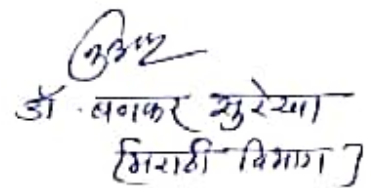 डॉ. बनकर सुरेखा
[मराठी विभाग]